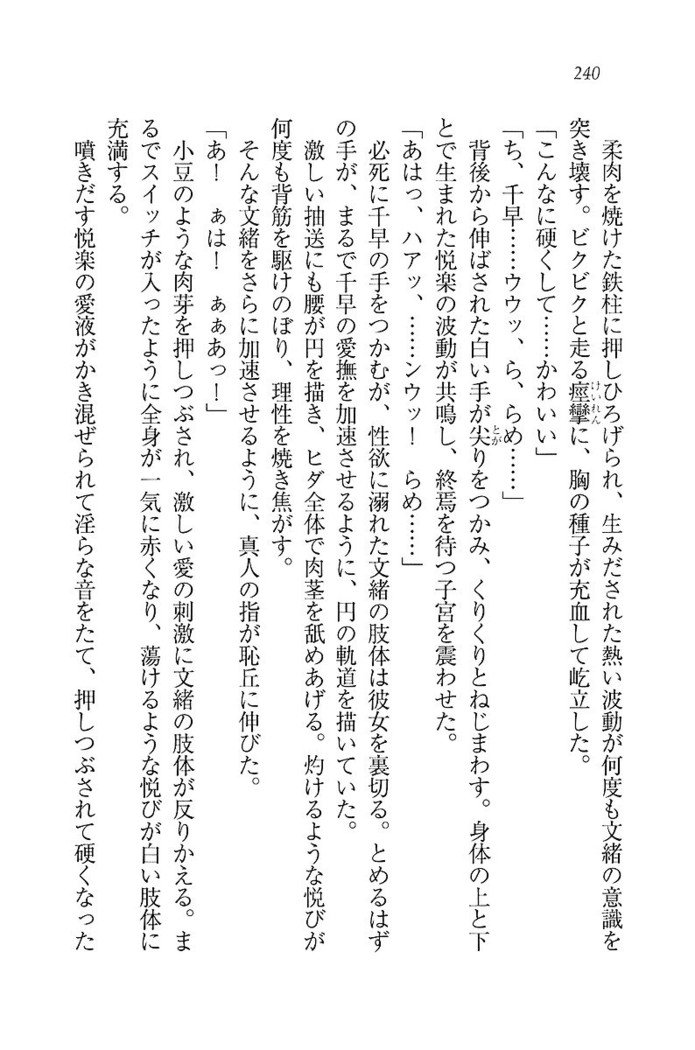 240
柔肉を焼けた鉄柱に押しひろげられ、生みだされた熱い波動が何度も文緒の意識を
突き壊す。ビクビクと走る痙攣に、胸の種子が充血して屹立した。
けいれん
「こんなに硬くして……かわいい」
「ち、千早……ウウッ、ら、らめ……」
背後から伸ばされた白い手が尖りをつかみ、くりくりとねじまわす。身体の上と下
とが
とで生まれた悦楽の波動が共鳴し、終焉を待つ子宮を震わせた。
「あはっ、ハアッ、……ンウッ！　らめ……」
必死に千早の手をつかむが、性欲に溺れた文緒の肢体は彼女を裏切る。とめるはず
の手が、まるで千早の愛撫を加速させるように、円の軌道を描いていた。
激しい抽送にも腰が円を描き、ヒダ全体で肉茎を舐めあげる。灼けるような悦びが
何度も背筋を駆けのぼり、理性を焼き焦がす。
そんな文緒をさらに加速させるように、真人の指が恥丘に伸びた。
「あ！　ぁは！　ぁぁあっ！」
小豆のような肉芽を押しつぶされ、激しい愛の刺激に文緒の肢体が反りかえる。ま
るでスイッチが入ったように全身が一気に赤くなり、蕩けるような悦びが白い肢体に
充満する。
噴きだす悦楽の愛液がかき混ぜられて淫らな音をたて、押しつぶされて硬くなった